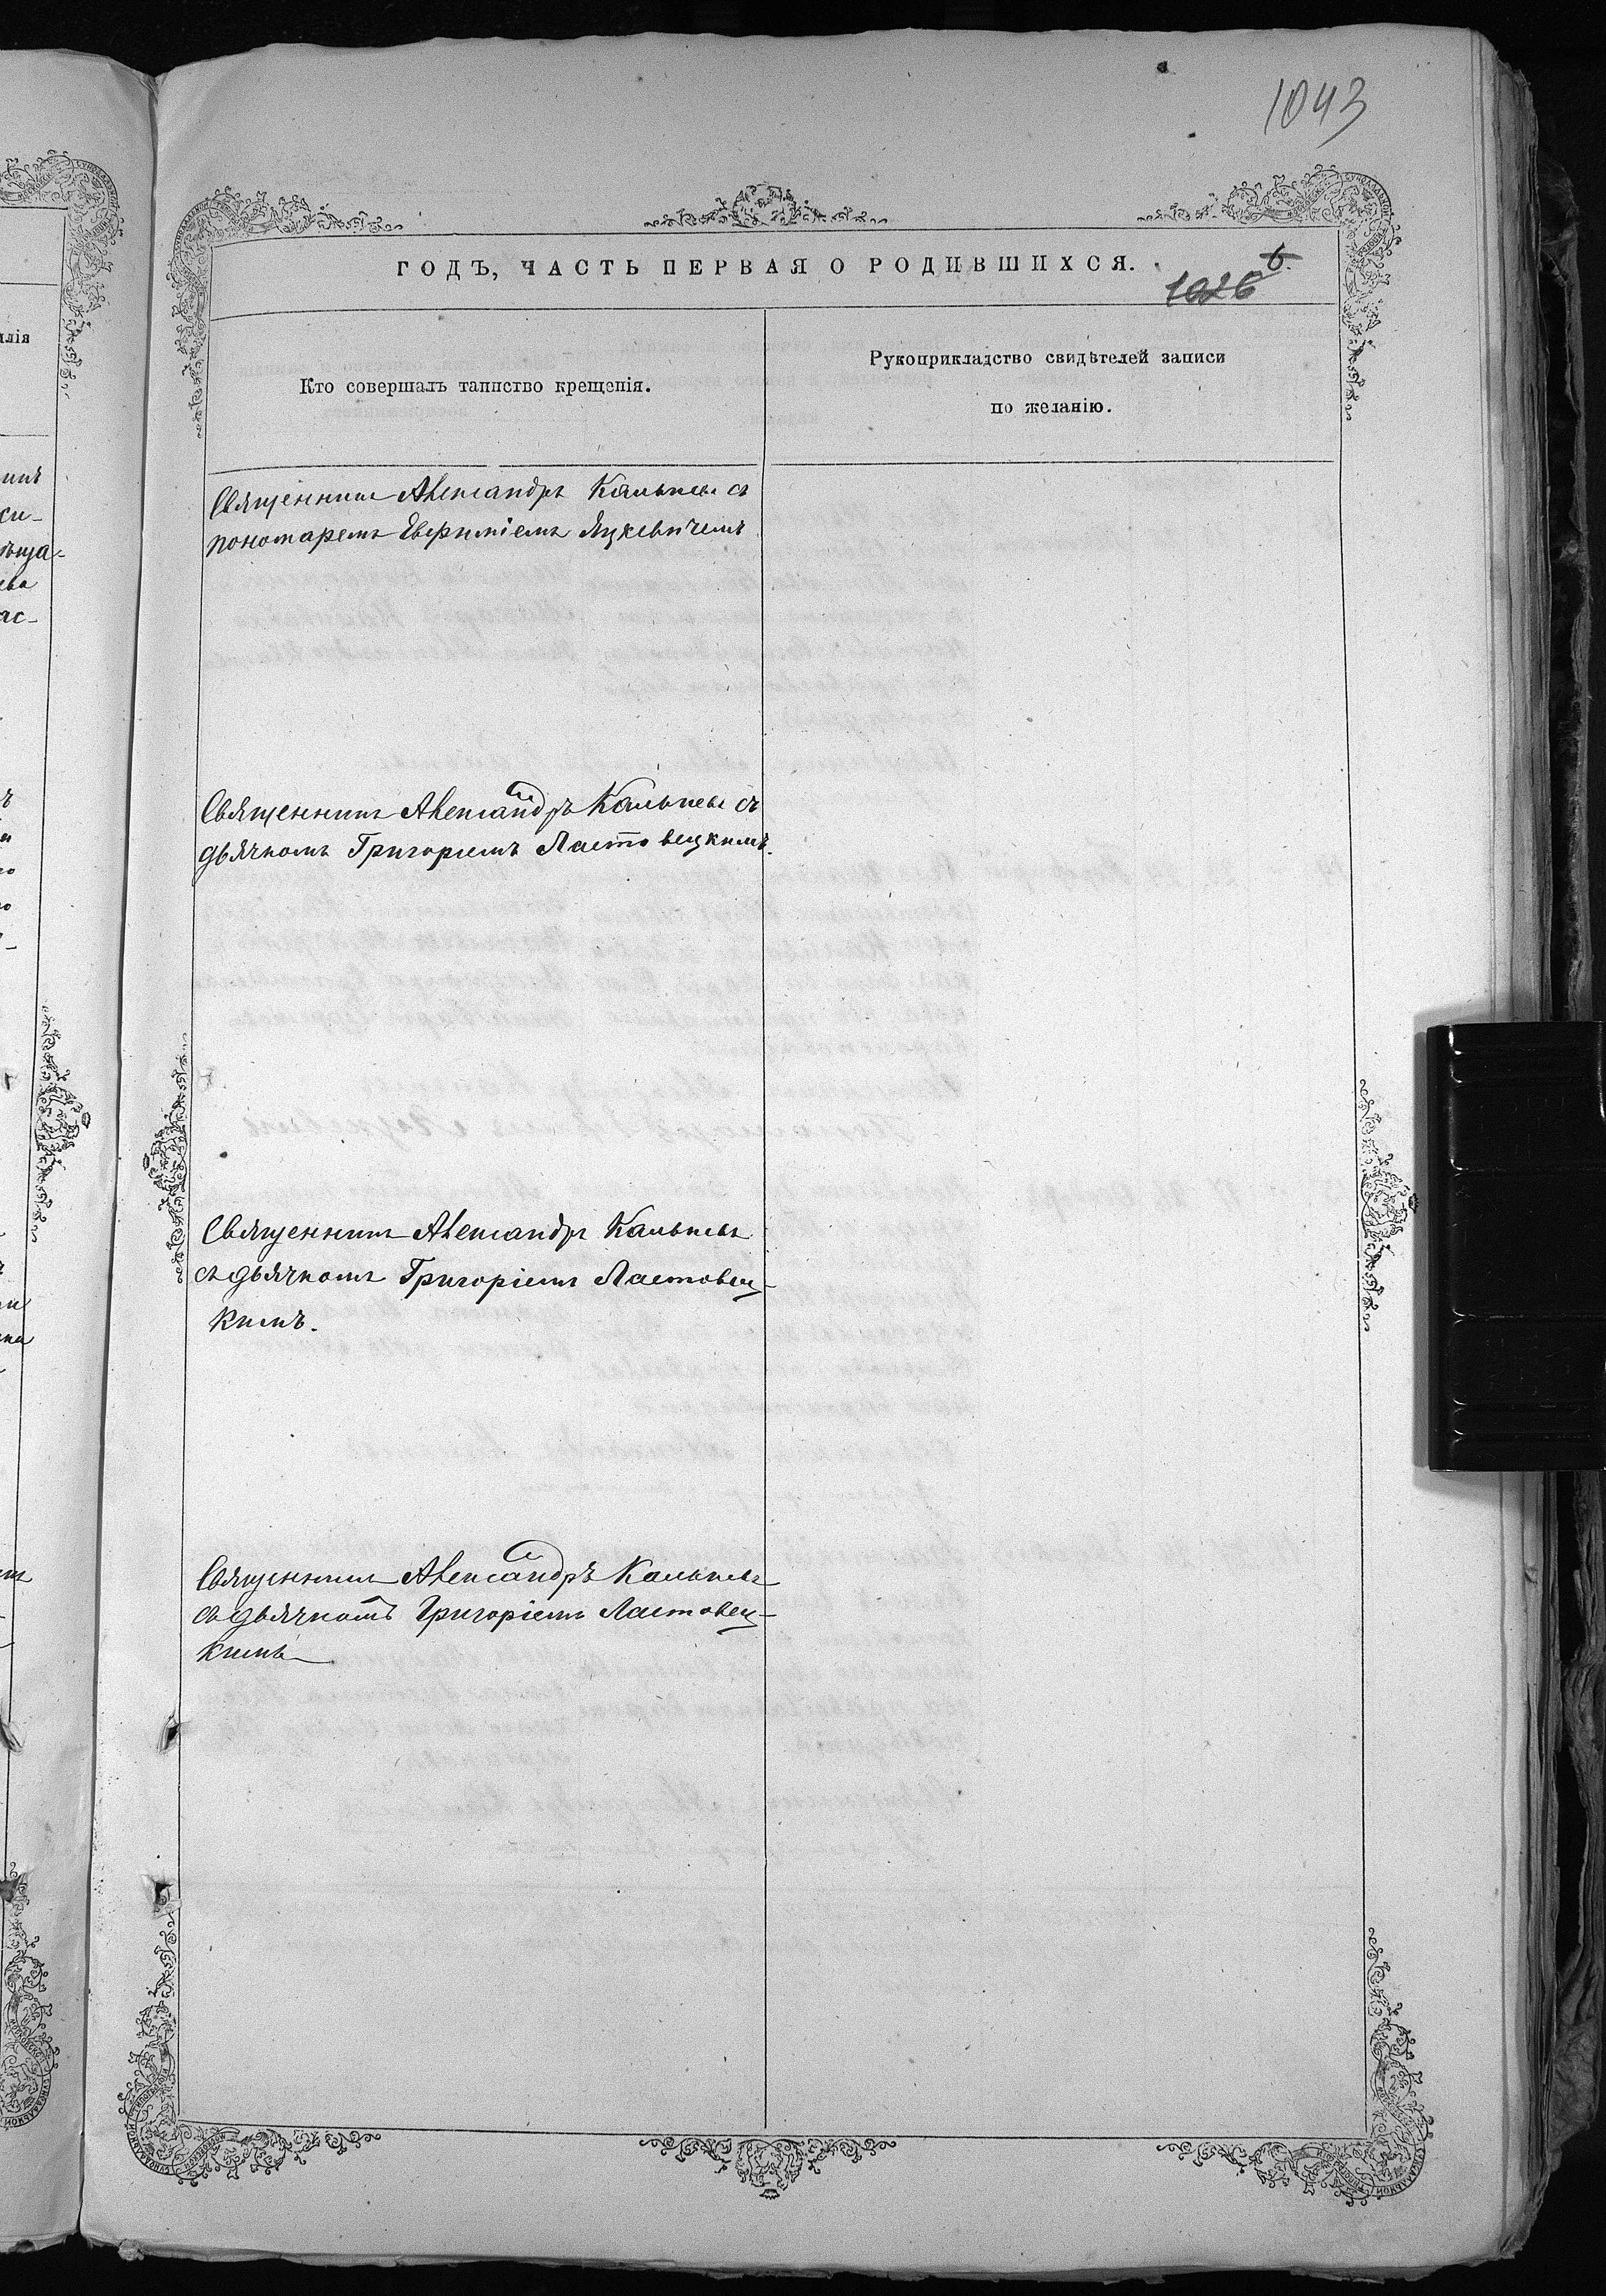 1043
ГОДЪ, ЧАСТЬ ПЕРВАЯ О РОДИВШИХСЯ.
Кто совершалъ таинство крещенія.
Рукоприкладство свидѣтелей записи
по желанію.
Священникъ Александръ Кальневъ съ
пономаремъ Евфиміемъ Яцкевичемъ
Священникъ Александръ Кальневъ съ
дьячкомъ Григоріемъ Ластовецкимъ.
Священникъ Александръ Кальневъ
съ дьячкомъ Григоріемъ Ластовец-
кимъ.
Священникъ Александръ Кальневъ
съ дьячкомъ Григоріемъ Ластовец-
кимъ